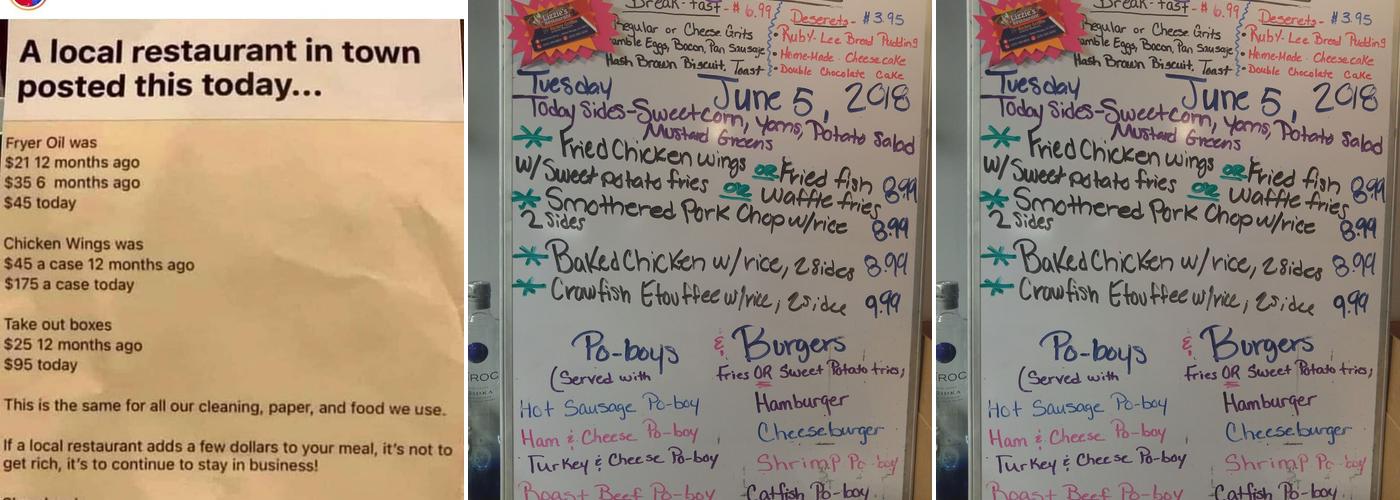 A local restaurant in town
posted this today...
Fryer Oil was
$21 12 months ago
$35 6 months ago
$45 today
Chicken Wings was
$45 a case 12 months ago
$175 a case today
Take out boxes
$25 12 months ago
$95 today
This is the same for all our cleaning, paper, and food we use.
If a local restaurant adds a few dollars to your meal, it's not to
get rich, it's to continue to stay in business!
Break-fast - $6.99
Regular or Cheese Grits
Eggs, Bacon, Pan Sausage
Hash Brown Biscuit, Toast
Deserets - $3.95
• Ruby-Lee Bread Pudding
• Home-Made Cheesecake
• Double Chocolate Cake
Lizzie's
Tuesday June 5, 2018
Today Sides-Sweetcorn, Yams, Potato Salad
Mustard Greens
* Fried Chicken wings OR Fried fish
w/Sweet potato fries OR Waffle fries 8.99
* Smothered Pork Chop w/rice
2 Sides 8.99
* Baked Chicken w/rice, 2 Sides 8.99
* Crawfish Etouffee w/rice, 2 side 9.99
Po-boys & Burgers
(Served with Fries OR Sweet Potato fries,
Hot Sausage Po-boy
Ham & Cheese Po-boy
Turkey & Cheese Po-boy
Roast Beef Po-boy
Hamburger
Cheeseburger
Shrimp Po-boy
Catfish Po-boy
ROC
Break-fast - $6.99
Regular or Cheese Grits
Eggs, Bacon, Pan Sausage
Hash Brown Biscuit, Toast
Deserets - $3.95
• Ruby-Lee Bread Pudding
• Home-Made Cheesecake
• Double Chocolate Cake
Lizzie's
Tuesday June 5, 2018
Today Sides-Sweetcorn, Yams, Potato Salad
Mustard Greens
* Fried Chicken wings OR Fried fish
w/Sweet potato fries OR Waffle fries 8.99
* Smothered Pork Chop w/rice
2 Sides 8.99
* Baked Chicken w/rice, 2 Sides 8.99
* Crawfish Etouffee w/rice, 2 side 9.99
Po-boys & Burgers
(Served with Fries OR Sweet Potato fries,
Hot Sausage Po-boy
Ham & Cheese Po-boy
Turkey & Cheese Po-boy
Roast Beef Po-boy
Hamburger
Cheeseburger
Shrimp Po-boy
Catfish Po-boy
ROC